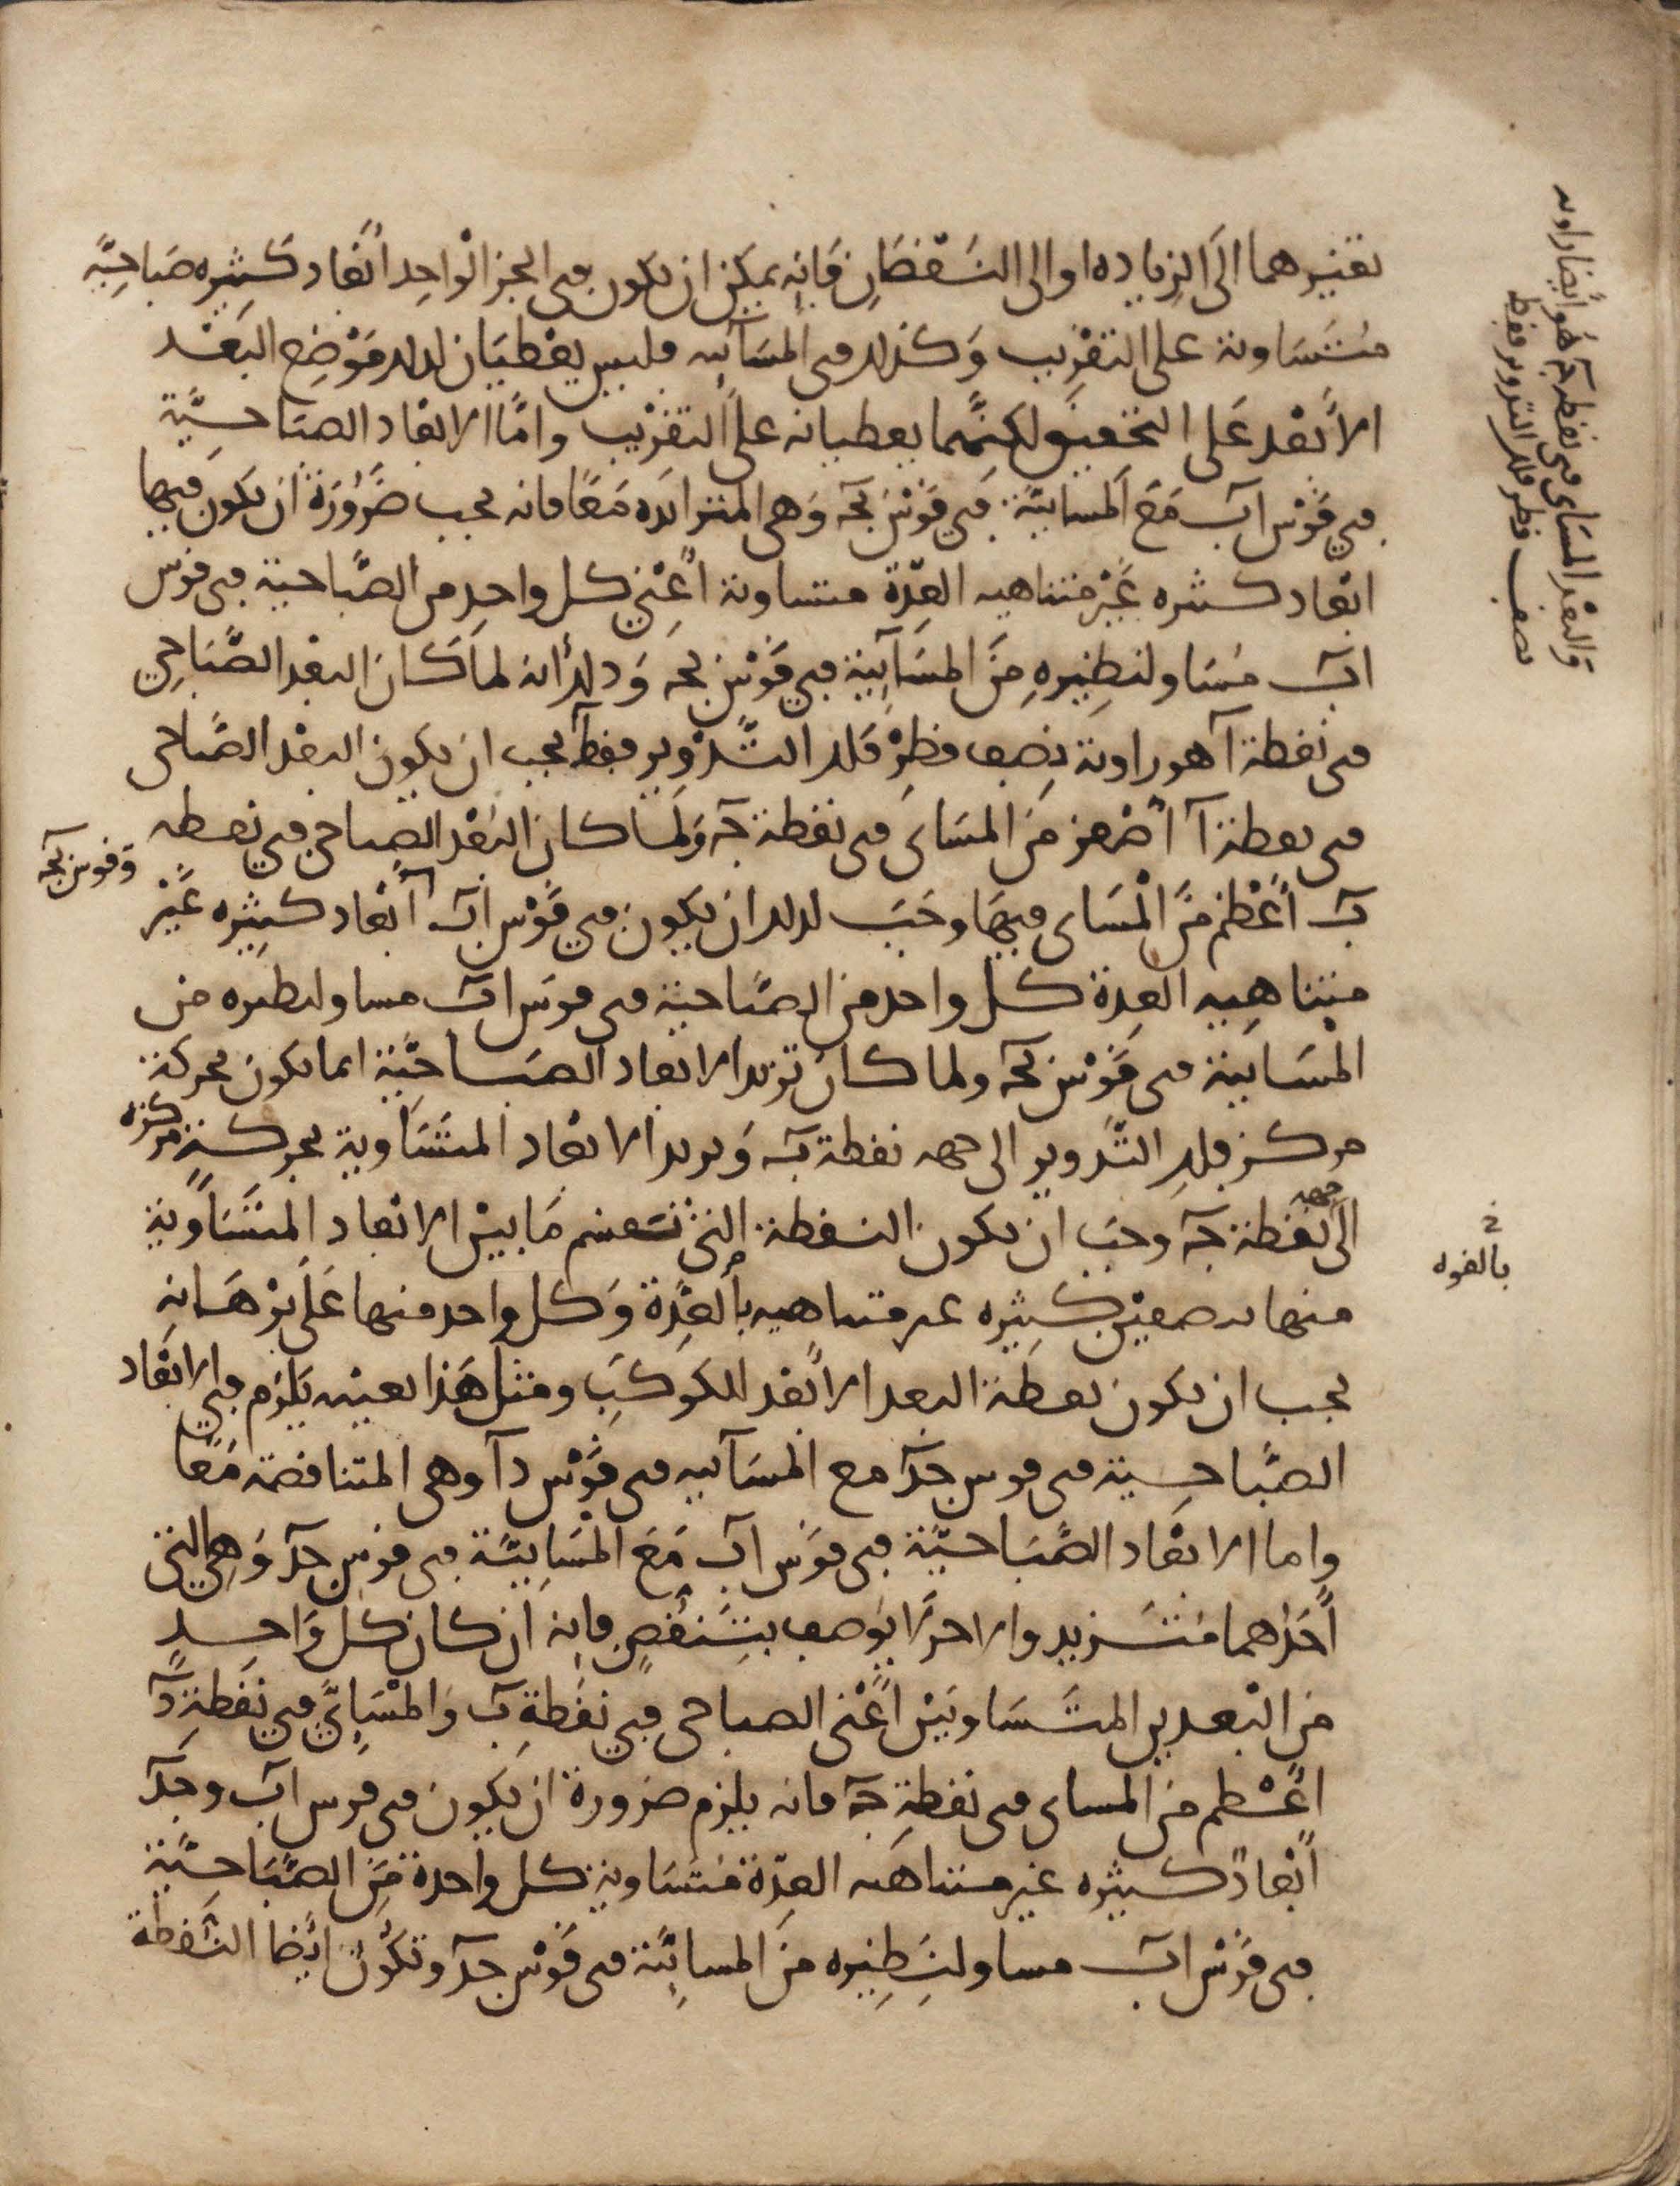 تغيرهما الى الزياده او الى النقصان فانه يمكن ان يكون في الجز الواحد ابعاد كثيره صباحيّة
متساوية على التقريب وكذلك في المسآئيه فليس يعطيان لذلك موضع البعد
الابعد على التحقيق لكنهما يعطيانه على التقريب وامّا الابعاد الصباحيّة
في قوس اب مع المسايية في قوس بج وهي المتزايده معًا فانه يجب ضرورة ان يكون فيها
ابعاد كثيره غير متناهيه العدّة متساوية اعني كل واحد من الصباحية في قوس
اب مساو لنظيره من المسآيية في قوس بج وذلك انه لما كان البعد الصّباحي
في نقطة ا هو زاوية نصف قطر فلك التّدوير فقط يجب ان يكون البعد الصّباحي
في نقطة ا اصغر من المساى في نقطة ج ولما كان البعد الصباحي في نقطه
ب اعظم من المساى فيها وجب لذلك ان يكون في قوس اب ابعاد كثيره غير
وقوس بج
متناهيه العدة كل واحد من الصباحية في قوس اب مساو لنظيره من
المسايية في قوس بج ولما كان تزيد الابعاد الصباحيّة انما يكون بحركة
مركز فلك التدوير الى جهه نقطة ب وتزيد الابعاد المتساوية بحركة مركزه
الى جهه نقطة ج وجب ان يكون النقطة التي تقسم ما بين الابعاد المتساوية
منها بنصفين كثيره غير متناهيه بالعدّة وكل واحد منها على برهانه
يجب ان يكون نقطة البعد الابعد للكوكب ومثل هذا بعينه يلزم في الابعاد
الصباحية في قوس جد مع المسآييه في قوس دا وهي المتناقصة معًا
واما الابعاد الصباحيّة في قوس اب مع المسايية في قوس جد وهي التي
احدهما متزيد والاخر يوصف بتنقص فانه ان كان كل واحد
من البعدين المتساويين اعني الصباحي في نقطة ب والمسايّ في نقطة د
اعظم من المساى في نقطة ج فانه يلزم ضرورة ان يكون في قوس اب وجد
ابعاد كثيره غير متناهيه العدّة متساوية كل واحدة من الصباحيّة
في قوس اب مساو لنظيره من المسايّة في قوس جد وتكون ايضا النقطة
والبعد المساى في نقطة ج هو ايضا زاوية
نصف قطر فلك التدوير فقط
بالقوه